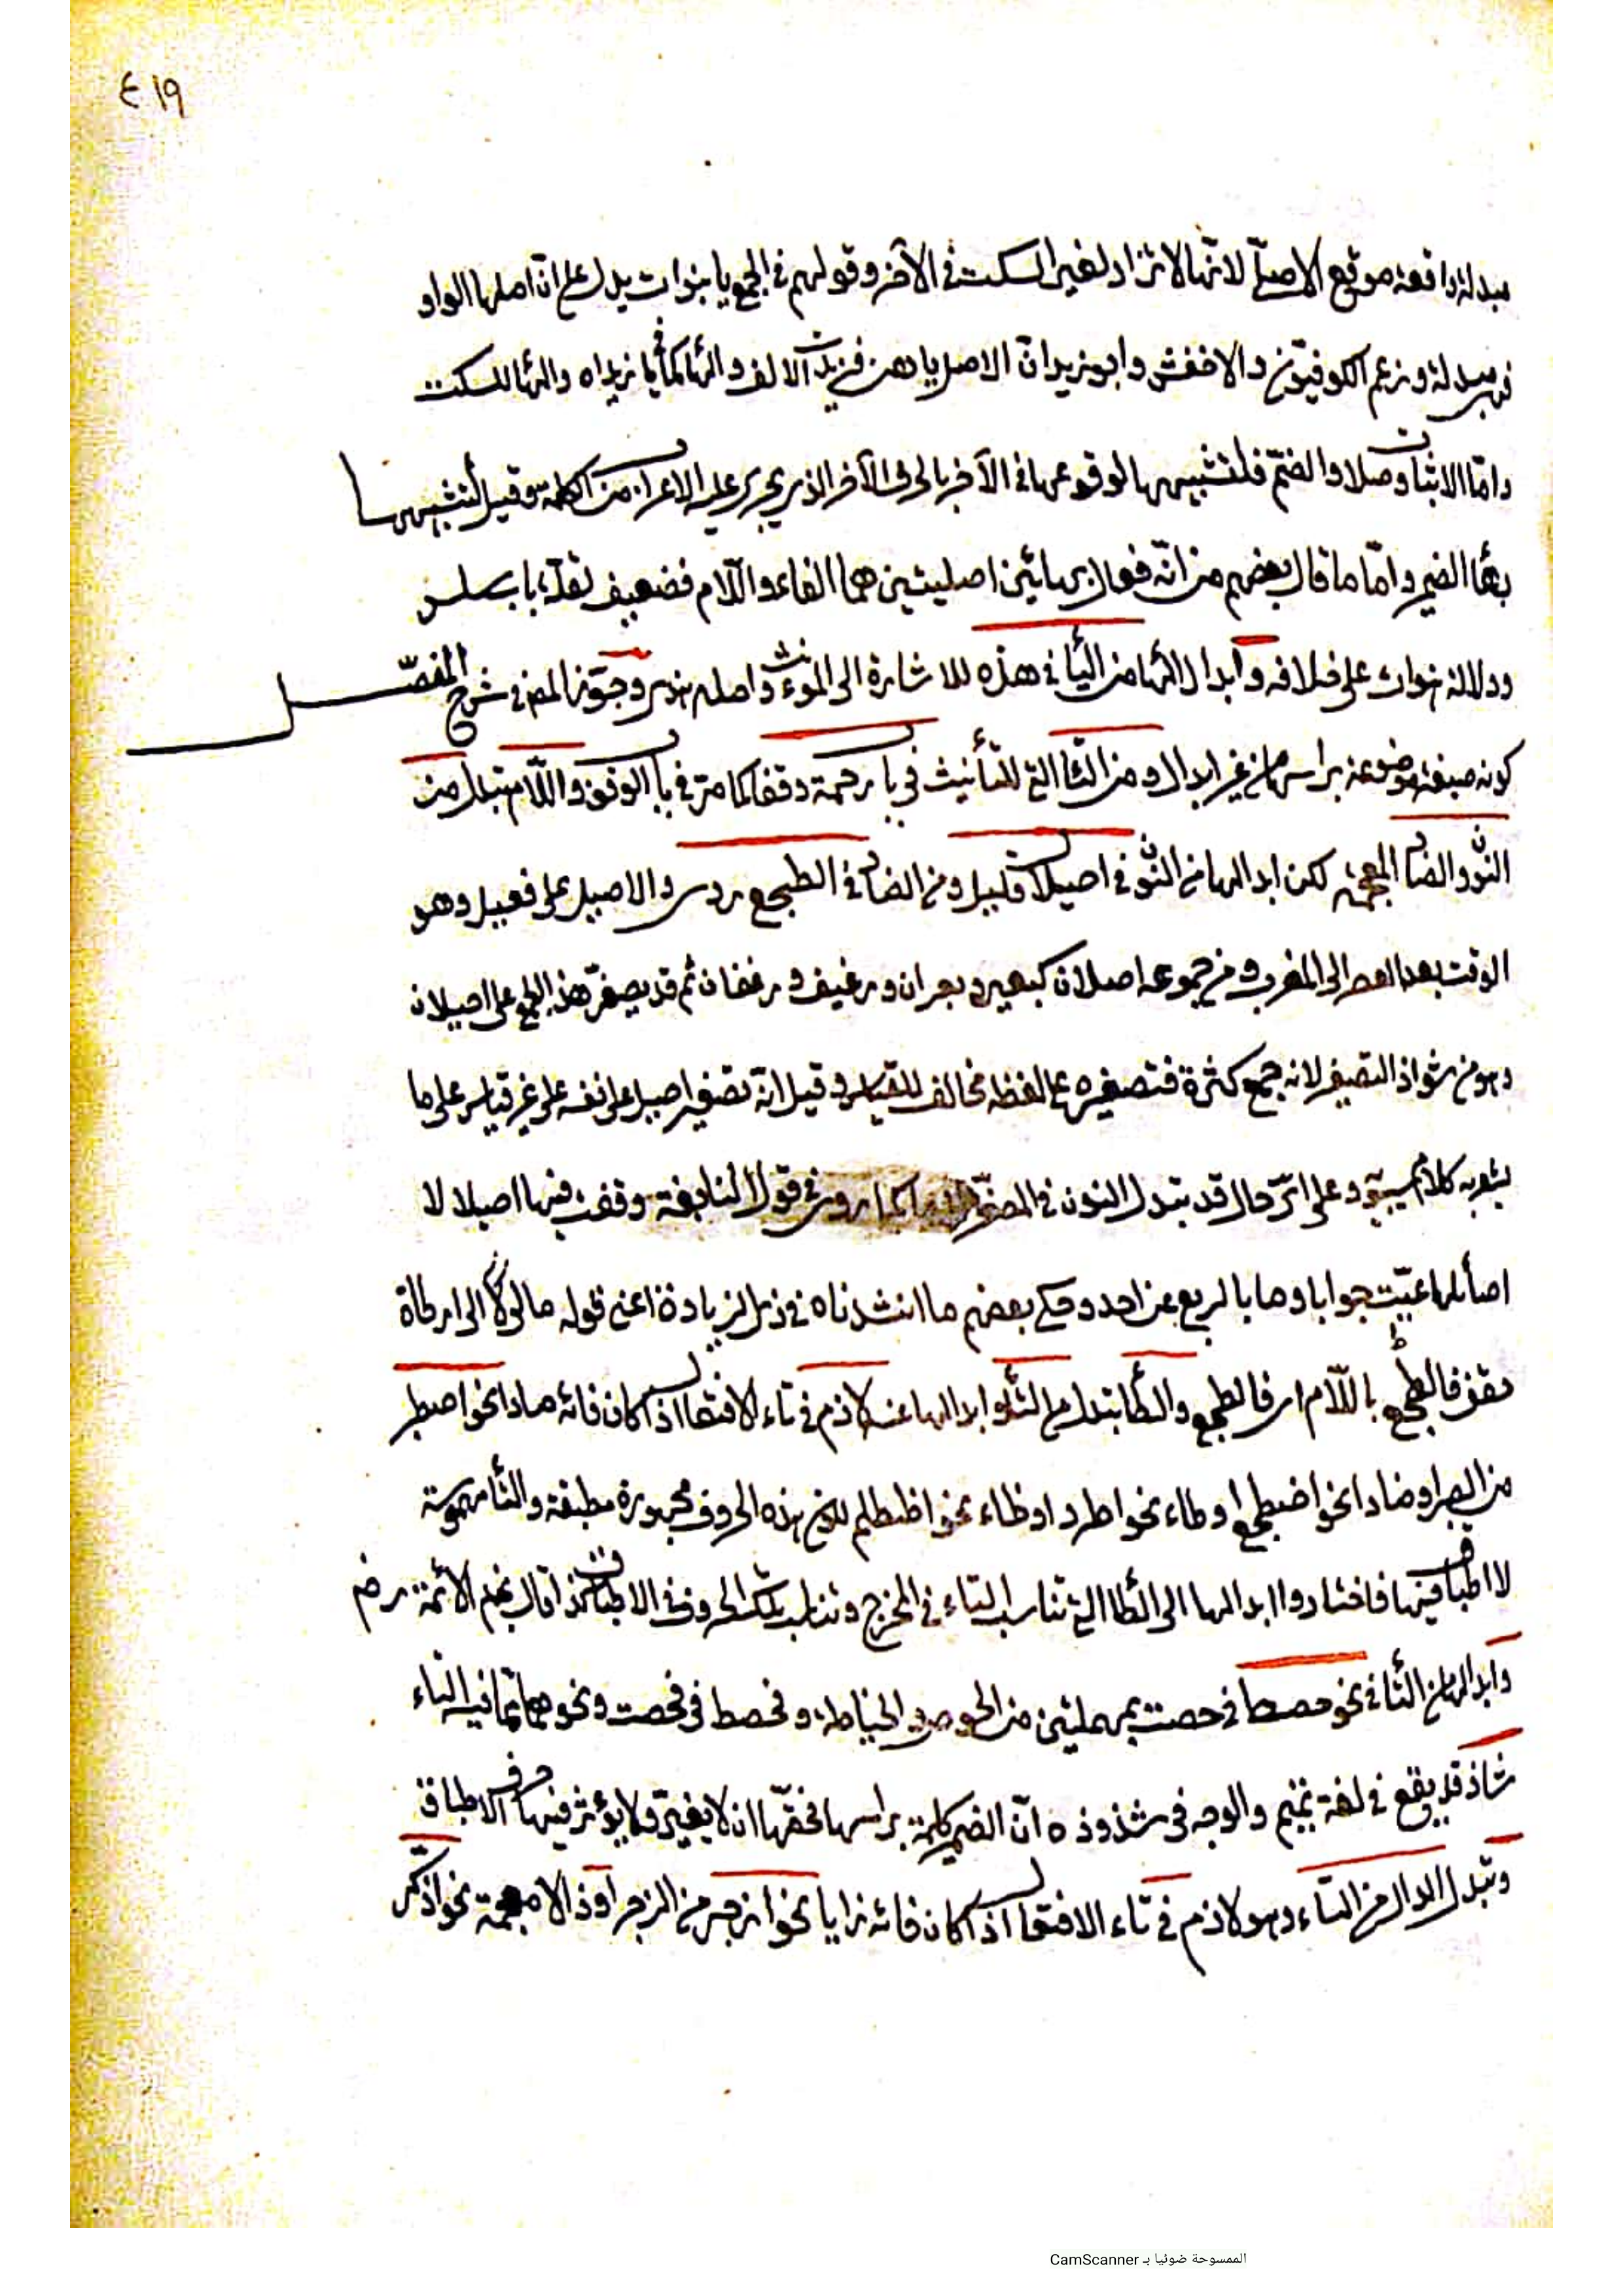 ٤١٩
مبدلة واقعة موقع الاصل لانها لا تزاد لغير السكت في الآخر وقولهم في الجمع يا هنوات يدل على ان اصلها الواو
فهي مبدلة وزعم الكوفيون والاخفش وابو زيد ان الاصل يا هن فزيدت الالف والهاء كما في يا زيداه والهاء للسكت
واما الاثبات وصلا والضم فلتشبيهها لوقوعها في الآخر بالحرف الآخر الذي يجري عليه الاعراب من الكلمة وقيل لتشبيهها
بهاء الضمير واما ما قال بعضهم من انه فعال بهائين اصليتين هما الفاء واللام فضعيف لقلة باب سلس
ودلالة هنوات على خلافه وابدال الهاء من الياء في هذه للاشارة الى المؤنث واصله هذي وجوز المص في شرح المفصل
كونه صيغة موضوعة براسها من غير ابدال ومن التاء التي للتأنيث في يا رحمة وقفا كما مر في باب الوقف واللام تبدل من
النون والضاد المعجمة لكن ابدالها من النون في اصيلال قليل ومن الضاد في الطجع ردي والاصيل على فعيل وهو
الوقت بعد العصر الى المغرب ومن جموعه اصلان كبعير وبعران ورغيف ورغفان ثم قد يصغر هذا الجمع على اصيلان
وهو من شواذ التصغير لانه جمع كثرة فتصغيره على لفظه مخالف للقياس وقيل انه تصغير اصيل على غير قياس على ما
يشعر به كلام سيبويه وعلى اي حال قد تبدل النون في المصغر لاما كما روي في قول النابغة وقفت فيها اصيلا لا
اصائلها عيت جوابا وما بالربع من احد وحكى بعضهم ما انشدناه في ذي الزيادة اعني قوله مال الى ارطاة
حقف فالطجع باللام اي فالطجع والطاء تبدل من التاء وابدالها منه لازم في تاء الافتعال اذا كان فائه صادا نحو اصطبر
من الصبر او ضادا نحو اضطجع او طاء نحو اطرد او ظاء نحو اظطلم لان هذه الحروف مجهورة مطبقة والتاء مهموسة
لا اطباق فيها فاختاروا ابدالها الى الطاء التي تناسب التاء في المخرج وتناسب تلك الحروف في الاطباق كذا قال نجم الائمة رض
وابدالها من التاء في نحو حصط في حصت بمهملتين من الحوص والخياطة وفحصط في فحصت ونحوهما مما فيه التاء
شاذ قد يقع في لغة تميم والوجه في شذوذه ان الضمير كلمة براسها فحقها ان لا يغير ولا يؤثر فيها حرف الاطباق
وتبدل الدال من التاء وهو لازم في تاء الافتعال اذا كان فائه زايا نحو ازدجر من الزجر او ذالا معجمة نحو اذكر
الممسوحة ضوئيا بـ CamScanner